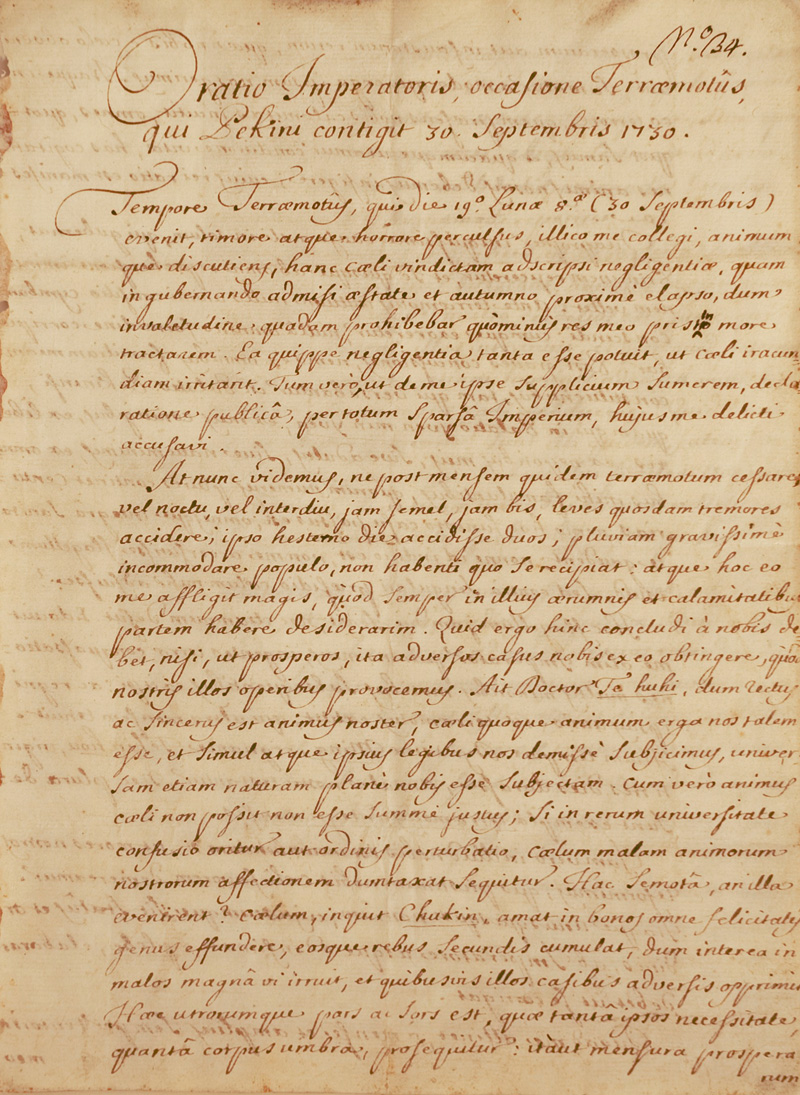 N.º 34.
Oratio Imperatoris, occasione Terræmotûs,
qui Pekini contigit 30. Septembris 1730.
Tempore Terræmotûs, qui die 19.º Lunæ 8.æ (30 Septembris)
evenit, timore atque horrore perculsus, illico me collegi, animum
què discutiens, hanc cæli vindictam adscripsi negligentiæ, quam
in gubernando admisi æstate et autumno proximè elapso, dum
invaletudine quadam prohibebar quòminus res meo pristino more
tractarem. Ea quippe negligentia tanta esse potuit, ut cæli iracun
diam irritant. Tum verò, ut de me ipse supplicium sumerem, decla
ratione publicâ, per totum sparsâ Imperium, hujus me delicti
accusavi.
At nunc videmus, ne post mensem quidem terræmotum cessare,
vel noctu, vel interdiu, jam semel, jam bis, leves quosdam tremores
accidere; ipso hesterno die accidisse duos; pluviam gravissimè
incommodare populo, non habenti quo se recipiat: atque hoc eo
me affligit magis, quòd semper in illius ærumnis et calamitatibus
partem habere desiderarim. Quid ergo hinc concludi à nobis de
bet, nisi, ut prosperos, ita adversos casus nobis ex eo obtingere, quòd
nostris illos operibus provocemus. Ait Doctor Ta huhi, dum rectus
ac sincerus est animus noster, cæli quoque animum erga nos talem
esse, et simul atque ipsius legibus nos demissè subjicimus, univer
sam etiam naturam planè nobis esse subjectam. Cum verò animus
cæli non possit non esse summè justus; si in rerum universitate
confusio oritur aut ordinis perturbatio, cælum malam animorum
nostrorum affectionem dumtaxat sequitur. Hac semotâ, an illa
evenirent? Cælum, inquit Chukin, amat in bonos omne felicitatis
genus effundere, eosque rebus secundis cumulat, dum interea in
malos magnâ vi irruit, et quibusvis illos casibus adversis opprimit
Hæc utrorumque pars ac sors est, quæ tantâ ipsos necessitate,
quantâ corpus umbra, prosequitur: itaut mensura prospera
rum